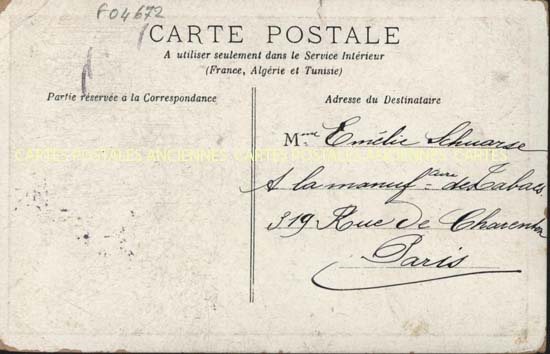 F04672
CARTE POSTALE
A utiliser seulement dans le Service Intérieur
(France, Algérie et Tunisie)
Partie réservée à la Correspondance
Adresse du Destinataire
Mme Emélie Schuarse
CARTES POSTALES ANCIENNES CARTES POSTALES ANCIENNES CARTES
A la manufture de Tabacs
319 Rue de Charenton
Paris